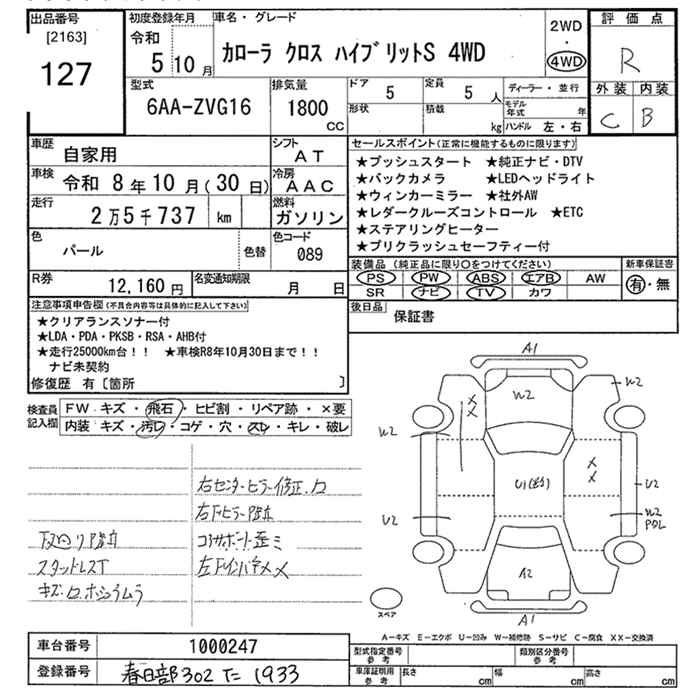 出品番号
[2163]
127
初度登録年月
令和
5 10 月
車名・グレード
カローラ クロス ハイブリットS 4WD
2WD
・
4WD
評価点
R
外装 内装
C B
型式
6AA-ZVG16
排気量
1800
CC
ドア
5
定員
5 人
形状
積載
kg
ディーラー・並行
モデル年式 年
ハンドル 左・右
車歴
自家用
シフト
AT
車検
令和 8 年 10 月(30 日)
冷房
AAC
走行
2 万 5 千 737 km
燃料
ガソリン
色
パール
色替
色コード
089
R券
12,160 円
名変通知期限
月 日
セールスポイント(正常に機能するものに限ります)
★プッシュスタート ★純正ナビ・DTV
★バックカメラ ★LEDヘッドライト
★ウィンカーミラー ★社外AW
★レダークルーズコントロール ★ETC
★ステアリングヒーター
★プリクラッシュセーフティー付
装備品(純正品に限り○をつけてください)
PS PW ABS エアB AW
SR ナビ TV カワ
新車保証書
有・無
後日品
保証書
注意事項申告欄(不具合内容等は具体的に記入して下さい)
★クリアランスソナー付
★LDA・PDA・PKSB・RSA・AHB付
★走行25000km台!! ★車検R8年10月30日まで!!
ナビ未契約
修復歴 有〔箇所 〕
検査員記入欄
FW キズ・飛石・ヒビ割・リペア跡・×要
内装 キズ・汚レ・コゲ・穴・スレ・キレ・破レ
右センターピラー修正、ロ
右Fピラー隆立
コアサポート歪ミ
スタッドレスT
A1
W2
W2
W2
U2
U2
W2
A2
A1
スペア
A-キズ E-エクボ U-凹み W-補修跡 S-サビ C-腐食 XX-交換済
車台番号
1000247
登録番号
春日部302 て 1933
型式指定番号
参考
類別区分番号
参考
車庫証明用
参考
長さ cm
幅 cm
高さ cm